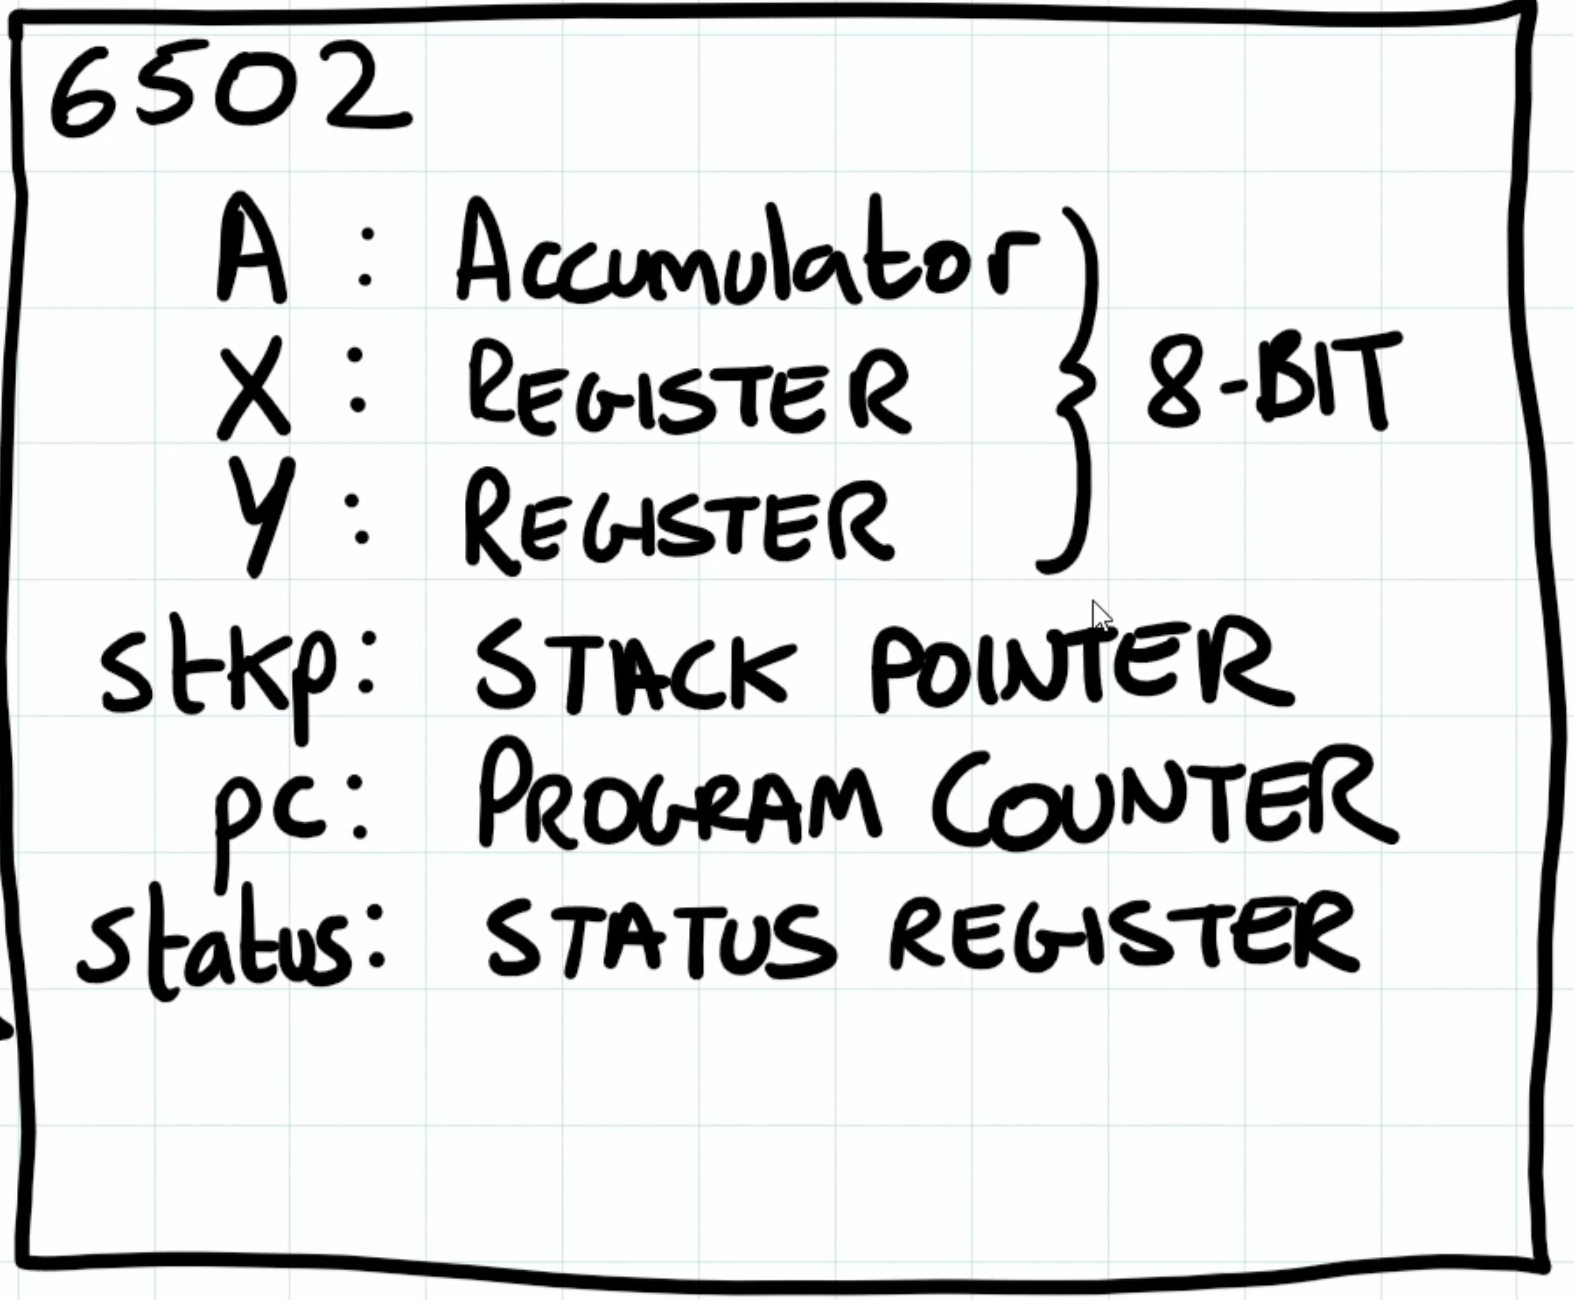 6502
A : Accumulator
X : REGISTER
Y : REGISTER
8-BIT
stkp: STACK POINTER
pc: PROGRAM COUNTER
status: STATUS REGISTER